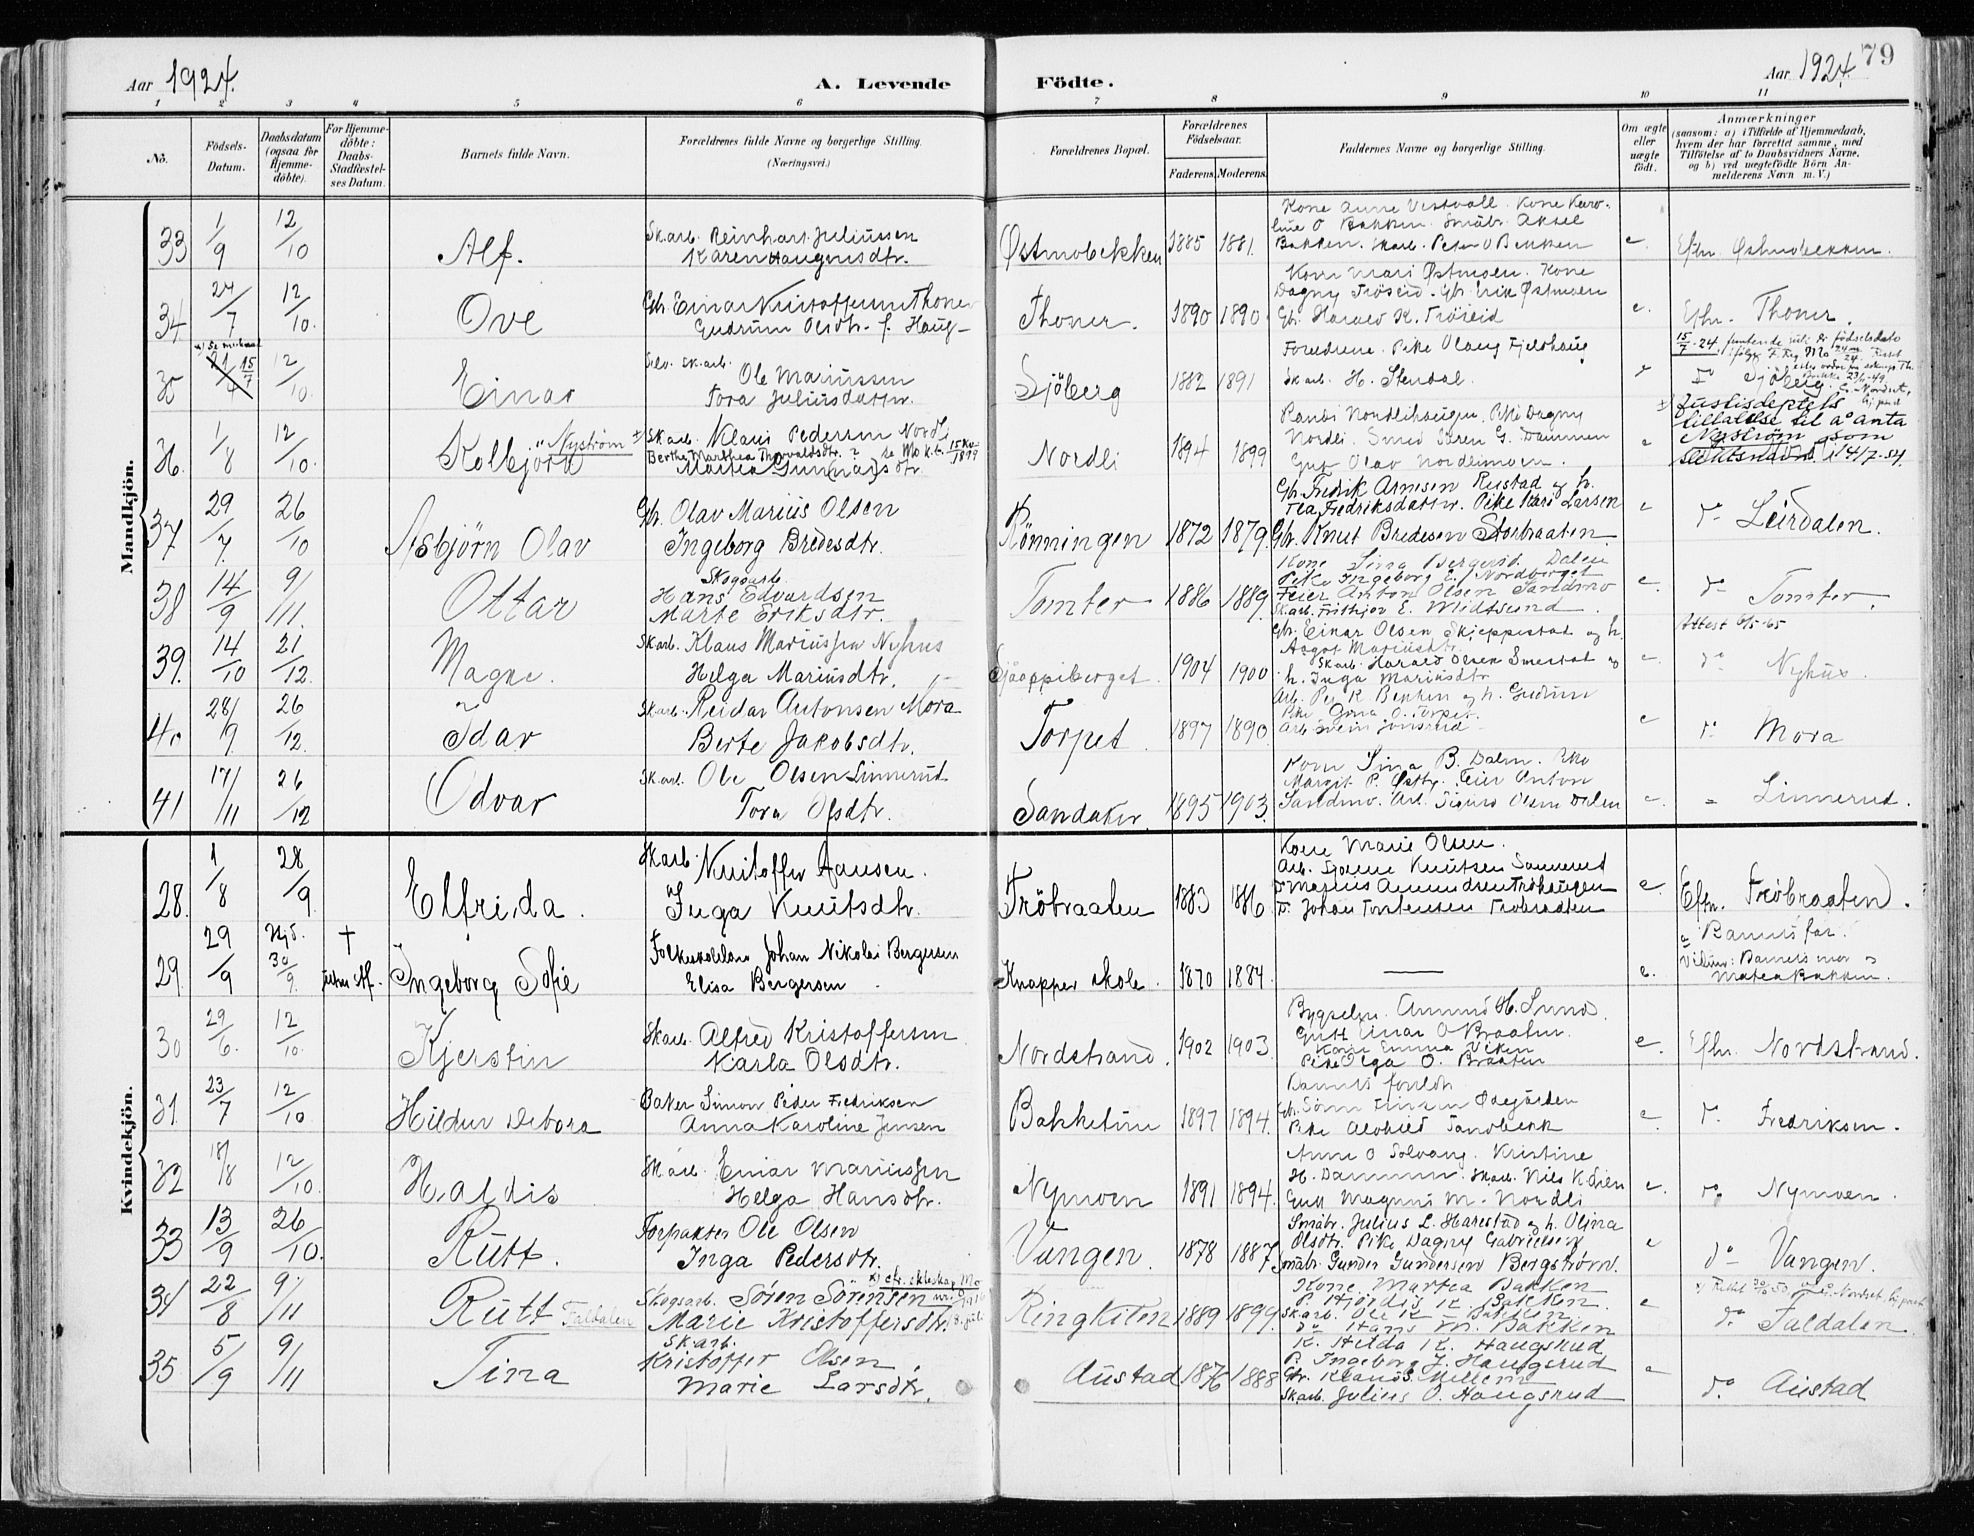 79
Aar 1924. A. Levende Födte. Aar 1924.
1 2 3 4 5 6 7 8 9 10 11
No.
Födsels-Datum.
Daabsdatum (ogsaa for Hjemme-döbte).
For Hjemme-döbte: Daabs-Stadfæstel-ses Datum.
Barnets fulde Navn.
Forældrenes fulde Navne og borgerlige Stilling.
(Næringsvei.)
Forældrenes Bopæl.
Forældrenes Födselsaar.
Faderens. Moderens.
Faddernes Navne og borgerlige Stilling.
Om ægte eller uægte födt.
Anmærkninger
(saasom: a) i Tilfælde af Hjemmedaab,
hvem der har forrettet samme, med
Tilföielse af to Daabsvidners Navne,
og b) ved uægtefödte Börn An-
melderens Navn m. V.)
Mandkjön.
33 1/9 12/10 Alf. Skarb. Reinhart Juliussen
Karen Haugensdtr. Østmobekken 1885 1881.
Kone Anne Vestvall. Kone Karo-
line O Bakken. Småbr. Aksel
Bakken. Skarb. Peter O Bakken e. Efln. Østmobekken.
34 24/7 12/10. Ove Gbr. Einar Kristoffersen Thoner
Gudrun Olsdtr. f. Haug Thoner. 1890 1890
Kone Mari Østmoen. Kone
Dagny Fröseid. Gbr. Erik Østmoen
Gbr. Harald K. Fröseid e. Efln. Thoner.
35 15/7 12/10. Einar Selv. Skarb. Ole Mariussen
Tora Juliusdatter. Sjöberg 1882 1891
Foreldrene. Pike Olaug Fjeldhaug
Skarb. H. Stendal. e do Sjöberg.
36. 1/8 12/10. Kolbjörn Nyström Skarb. Klaus Pedersen Nordli
Berthe Marthea Thorvaldsdtr.
Martea Gunnarsdtr. Nordli 1894 1899
Randi Nordlihaugen. Pike Dagny
Nordli. Smed Sören G. Dammen
Gut Olav Nordlimoen. e
Justisdeptets
tillatelse til å anta
Nyström som
slektsnavn i 14/7-54.
37 29/7. 26/10 Asbjörn Olav Gbr. Olav Marius Olsen
Ingeborg Bredesdtr. Rönningen 1872 1879.
Gbr. Fredrik Arnesen Rustad og h.
Tea Fredriksdatter. Pike Kari Larsen
Gbr. Knut Bredesen Storbraaten. e do Leirdalen.
38 14/9 9/11. Ottar Skogsarb.
Hans Edvardsen
Marte Eriksdtr. Tomter 1886 1889.
Kone Sina Bergersd. Dalen
Pike Ingeborg E. Nordberget
Feier Anton Olsen Sandmo
Skarb. Frithjov E. Midtsund. e. do Tomter.
39. 14/10 21/12. Magne. Skarb. Klaus Mariussen Nyhus
Helga Mariusdtr. Sjåeppiberget. 1904 1900
Gbr. Einar Olsen Skjeppestad og h.
Aagot Mariusdtr.
Skarb. Harald Olsen Smestad og
h. Inga Mariusdtr e. Attest 6/5-65
do Nyhus.
40 28/9 26/12. Idar Skarb. Reidar Antonsen Mora
Berte Jakobsdtr. Torpet. 1897 1890.
Arb. Per K Bekken og h. Gudrun
Pike Gina O. Torpet. e do Mora
41 17/11 26/12 Odvar Skarb. Ole Olsen Linnerud
Tora Olsdtr. Sandaker. 1895 1903.
Kone Sina B. Dalen. Pike
Margit P. Østby. Feier Anton
Sandmo. Arb. Sigurd Olsen Dalen e. " Linnerud.
Kvindekjön.
28. 1/8 28/9. Elfrida. Skarb. Kristoffer Hansen.
Inga Knutsdtr. Fröbraaten 1883 1886.
Kone Marie Olsen.
Arb. Bjarne Knutsen Sannerud
do Marius Amundsen Fröhaugen
do Johan Torstensen Fröbraaten e. Efln. Fröbraaten.
29. 29/9 Hj.d. 30/9. † Ingeborg Sofie Folkeskolelærer Johan Nikolai Bergersen
Elisa Bergersen. Knapper skole. 1870 1884. — e.
a Barnets far.
Vidner: Barnets mor og
Matea Bakken.
30 29/6. 12/10. Kjerstin Skarb. Alfred Kristoffersen
Karla Olsdtr. Nordstrand. 1902 1903.
Bygselm. Amund H. Sund.
Gutt Einar O Braaten.
Kone Emma Viken
Pike Olga O. Braaten e. Efln. Nordstrand.
31 23/7 12/10. Hildur Debora Baker Simon Peder Fredriksen
Anna Karoline Jensen Bakketun 1897 1894.
Barnets foreldr.
Gbr. Sören Iversen Ödegården
Pike Alvhild Sandbekk e. do Fredriksen.
32 18/8 12/10. Haldis Skarb. Einar Mariussen
Helga Hansdtr. Nymoen 1891 1894.
Anne O Solvang. Kristine
H. Dammen. Skarb. Nils K. Lien
Gutt Magnus M. Nordli e. do Nymoen.
33 13/9 26/10. Rutt. Forpakter Ole Olsen
Inga Pedersdtr. Vangen. 1878 1887.
Småbr. Julius L. Harestad og h. Olina
Olsdtr. Pike Dagny Gabrielsen
Småbr. Gunder Gundersen Bergström. e do Vangen.
34 22/8 9/11 Rutt Faldalen Skogsarb. Sören Sörensen
Marie Kristoffersdtr. Ringkiten 1889 1899.
Kone Martea Bakken
P. Hjördis K. Bakken.
Skarb. Ole K Bakken
do Hans M. Bakken e do Faldalen
35 5/9 9/11 Tina Skarb.
Kristoffer Olsen
Marie Larsdtr. Austad 1876 1888
K. Hilda K. Haugsrud
P. Ingeborg J. Haugsrud
Gbr. Klaus S. Millem
Skarb. Julius O. Haugsrud e do Austad